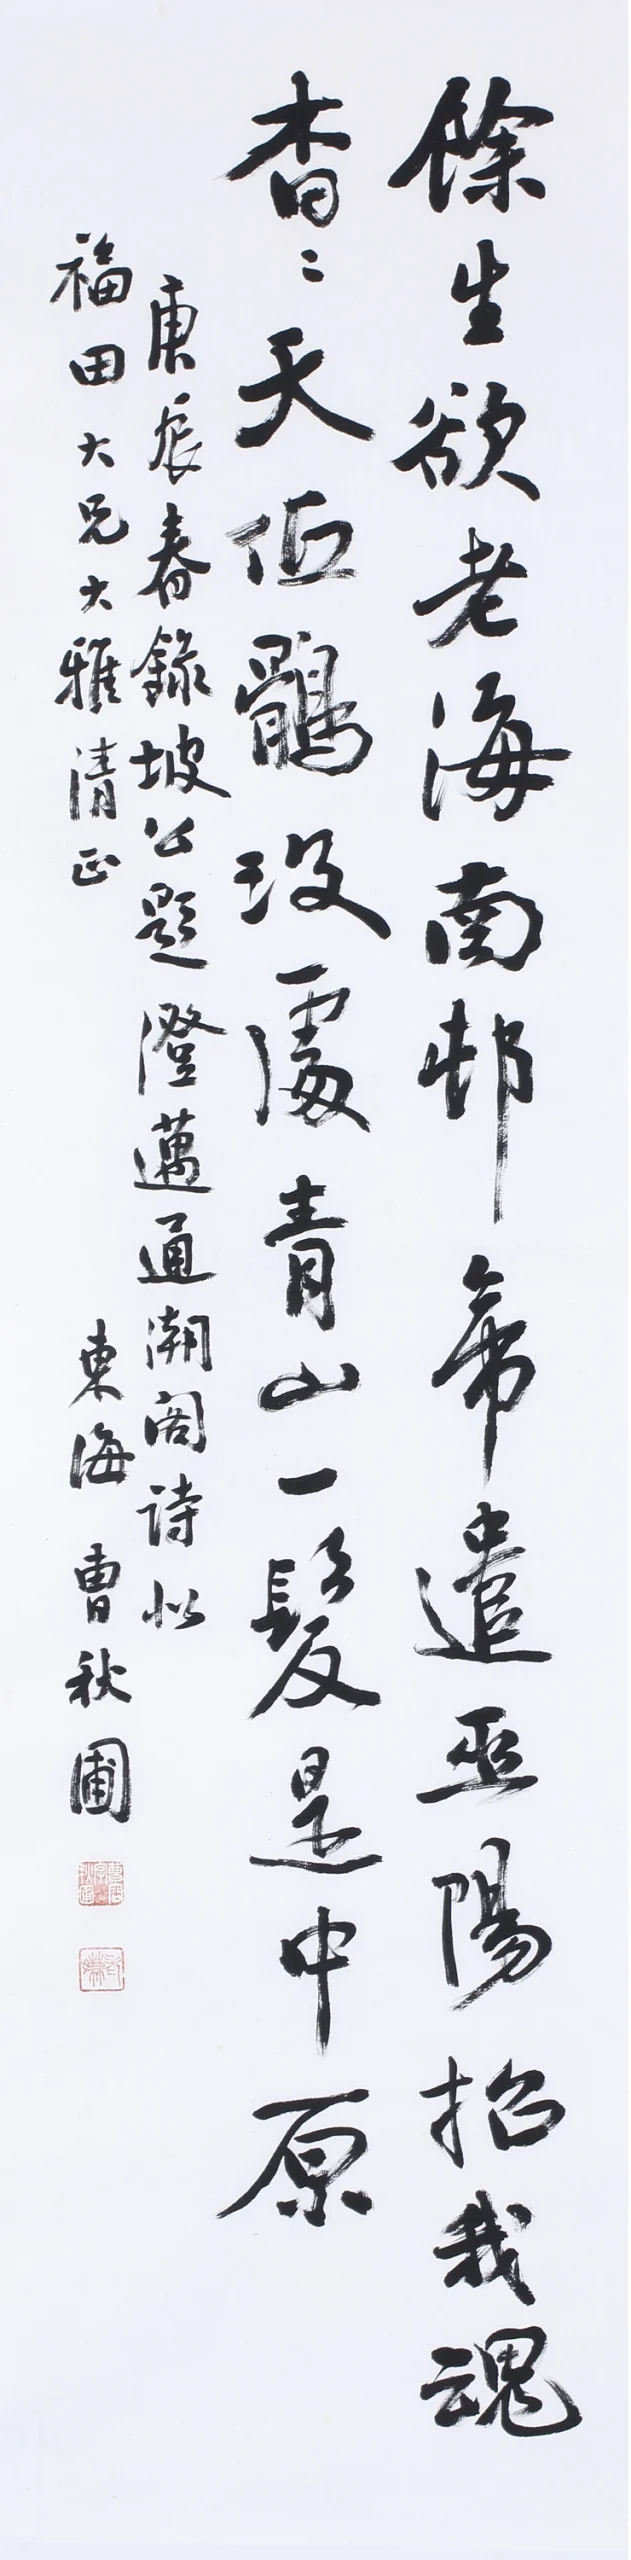 餘生欲老海南邨帝遣巫陽招我魂
杳〻天低鶻没處青山一髮是中原
庚辰春錄坡公題澄邁通潮閣詩似
福田大兄大雅清正
東海曹秋圃